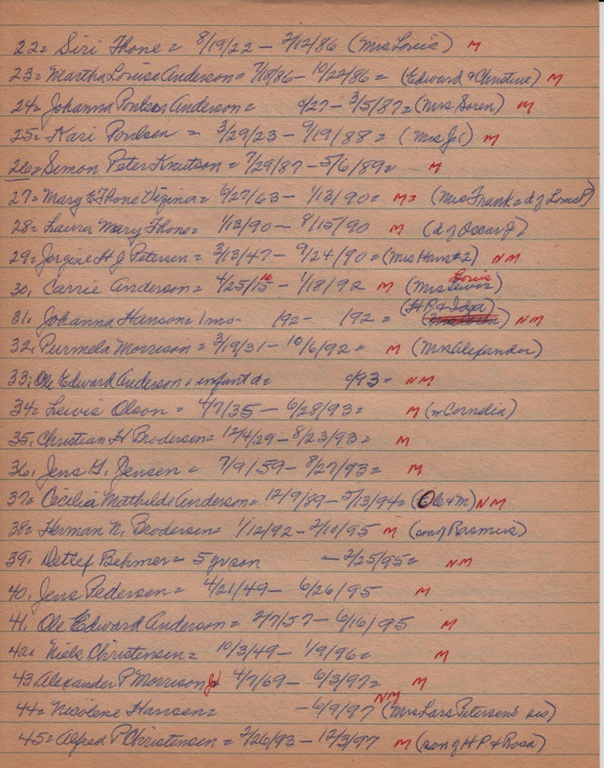 22= Siri Thone = 8/19/22 - 2/12/86 (Mrs Louis) M
23= Martha Louise Anderson = 7/18/86 - 10/22/86 = (Edward & Christine) M
24= Johanna Poulsen Anderson = 9/27 - 3/5/87 = (Mrs Soren) M
25= Kari Poulsen = 3/29/23 - 9/19/88 = (Mrs J.C) M
26= Simon Peter Knutson = 7/29/87 - 5/6/89 = M
27= Mary E Thone Vigina = 6/27/63 - 1/13/90 = M= (Mrs Frank = d of Louis)
28= Laura Mary Thone = 1/13/90 - 8/15/90 M (d of Oscar J)
29= Jorgine H J Petersen = 3/13/47 - 9/24/90 = (Mrs Hans #2) NM
30, Carrie Anderson = 4/25/15 - 1/18/92 M (Mrs Louis)
31, Johanna Hanson = 1 mo - 192 - 192 = (H P & Inga) NM
32, Purmela Morrison = 3/19/31 - 10/6/92 = M (Mrs Alexander)
33, Ole Edward Anderson, infant d = 6/93 = NM
34= Lewis Olson = 4/7/35 - 6/28/93 = M (m Cornelia)
35, Christian H Brodersen = 12/4/29 - 8/23/93 = M
36, Jens G. Jensen = 7/9/59 - 8/27/93 = M
37= Cecilia Mathilde Anderson = 12/9/89 - 5/13/94 = (Ole & M) NM
38= Herman N. Brodersen = 1/12/92 - 2/10/95 M (son of Rasmus)
39, Detlef Behmer = 5 yr son - 2/25/95 = NM
40, Jens Pedersen = 4/21/49 - 6/26/95 M
41, Ole Edward Anderson = 2/7/57 - 6/16/95 M
42= Niels Christensen = 10/3/49 - 1/9/96 = M
43, Alexander P Morrison Jr 4/7/69 - 6/3/97 = M
44= Nicolene Hansen = - 6/9/97 NM (Mrs Lars Petersens sis)
45= Alfred P Christensen = 2/26/93 - 12/3/97 M (son of H P & Rosa)